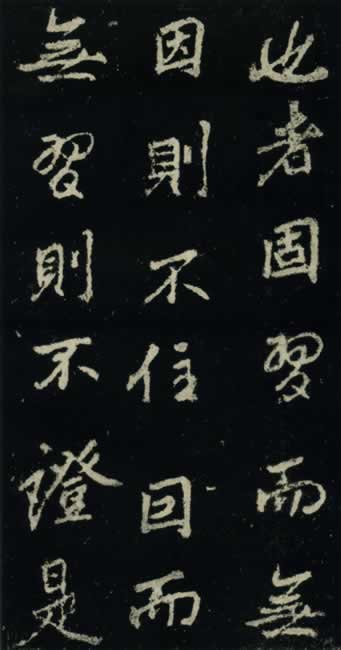 也者固習而無
因則不住回而
無習則不證是